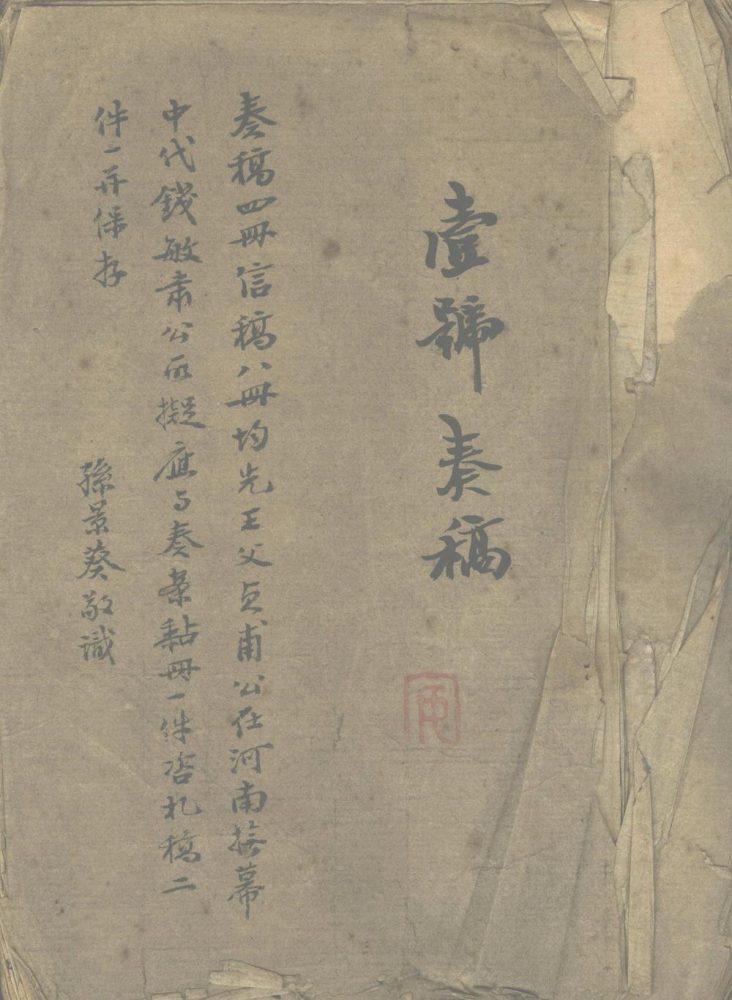 壹號奏稿
奏稿四冊信稿八冊均先王父貞甫公在河南撫幕
中代錢敏肅公所擬應與奏案黏冊一件咨札稿二
件一并保存
孫景葵敬識